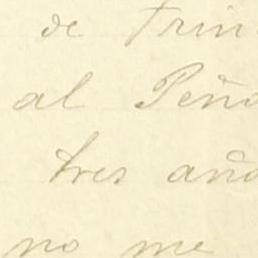 de Trin
al Peño
tres año
no me